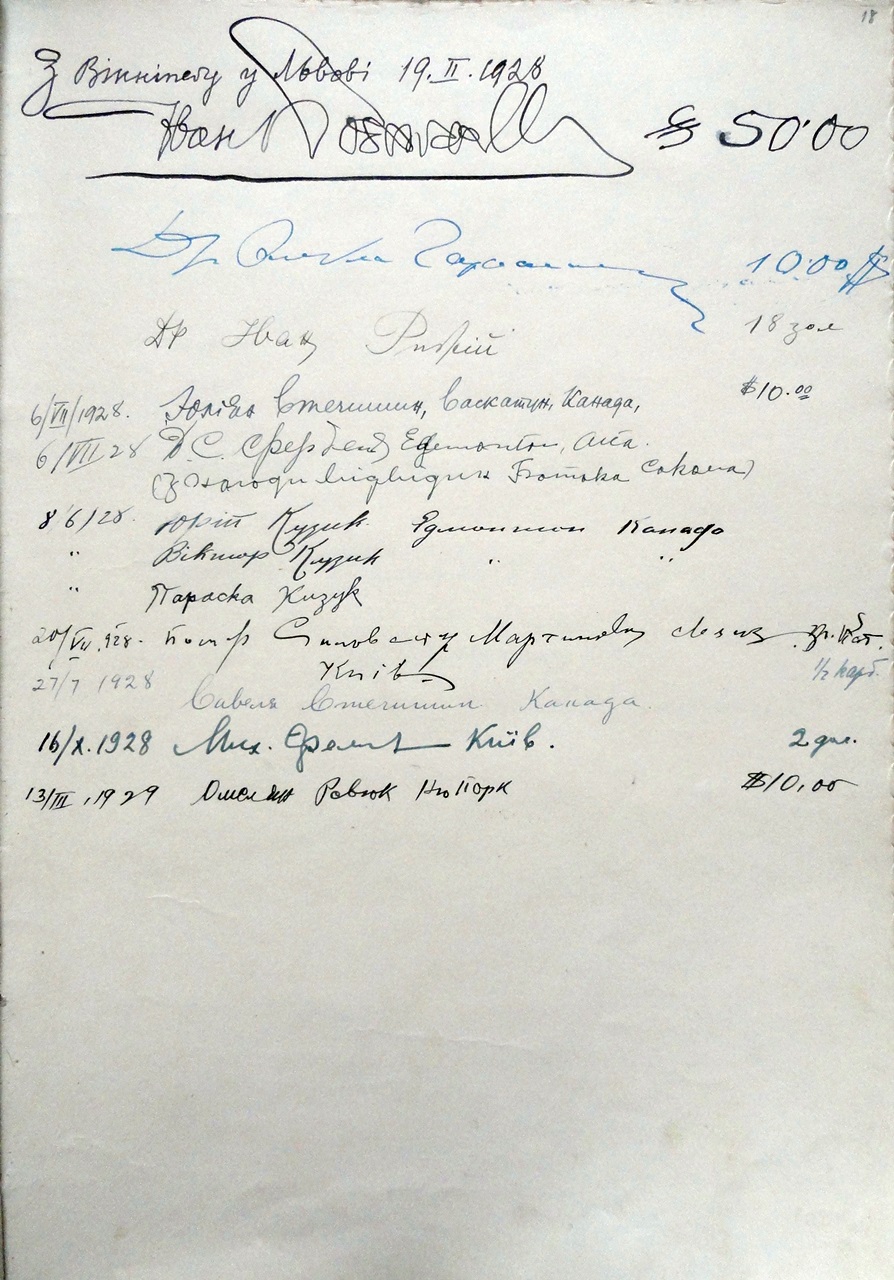 18
З Вінніпегу у Львові 19.II.1928
Іван $ 50·00
Др 10·00 $
Др Іван 18 зол
6/VII/1928. Юліян Стечишин, Саскатун, Канада, $10.00
6/VII 28 Д. С. Edmonton, Alta.
(З нагоди відвідин Батька Сокола)
8 6/28. Юрій Кузик Едмонтон Канада
" Віктор Кузик " "
" Параска Кизук
20/VII.928.
Київ
27/7 1928 1/2 карб.
Савеля Стечишин Канада.
16/X.1928 Мих. Київ. 2 дол.
13/III, 1929 Омелян Ревюк Ню Йорк $10,00